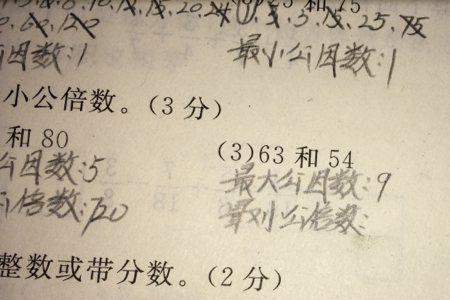 和 75
因数:1 最小公因数:1
小公倍数。(3 分)
和 80 (3)63 和 54
公因数:5 最大公因数:9
公倍数:720 最小公倍数:
整数或带分数。(2 分)